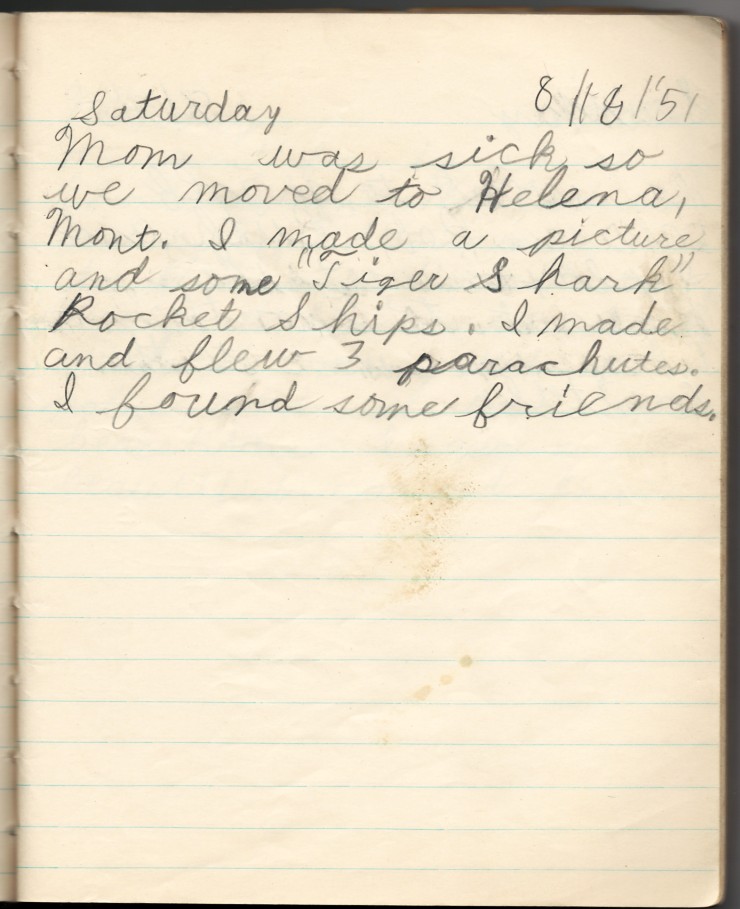 Saturday 8/18/'51
Mom was sick so
we moved to Helena,
Mont. I made a picture
and some "Tiger Shark"
Rocket Ships. I made
and flew 3 parachutes.
I found some friends.